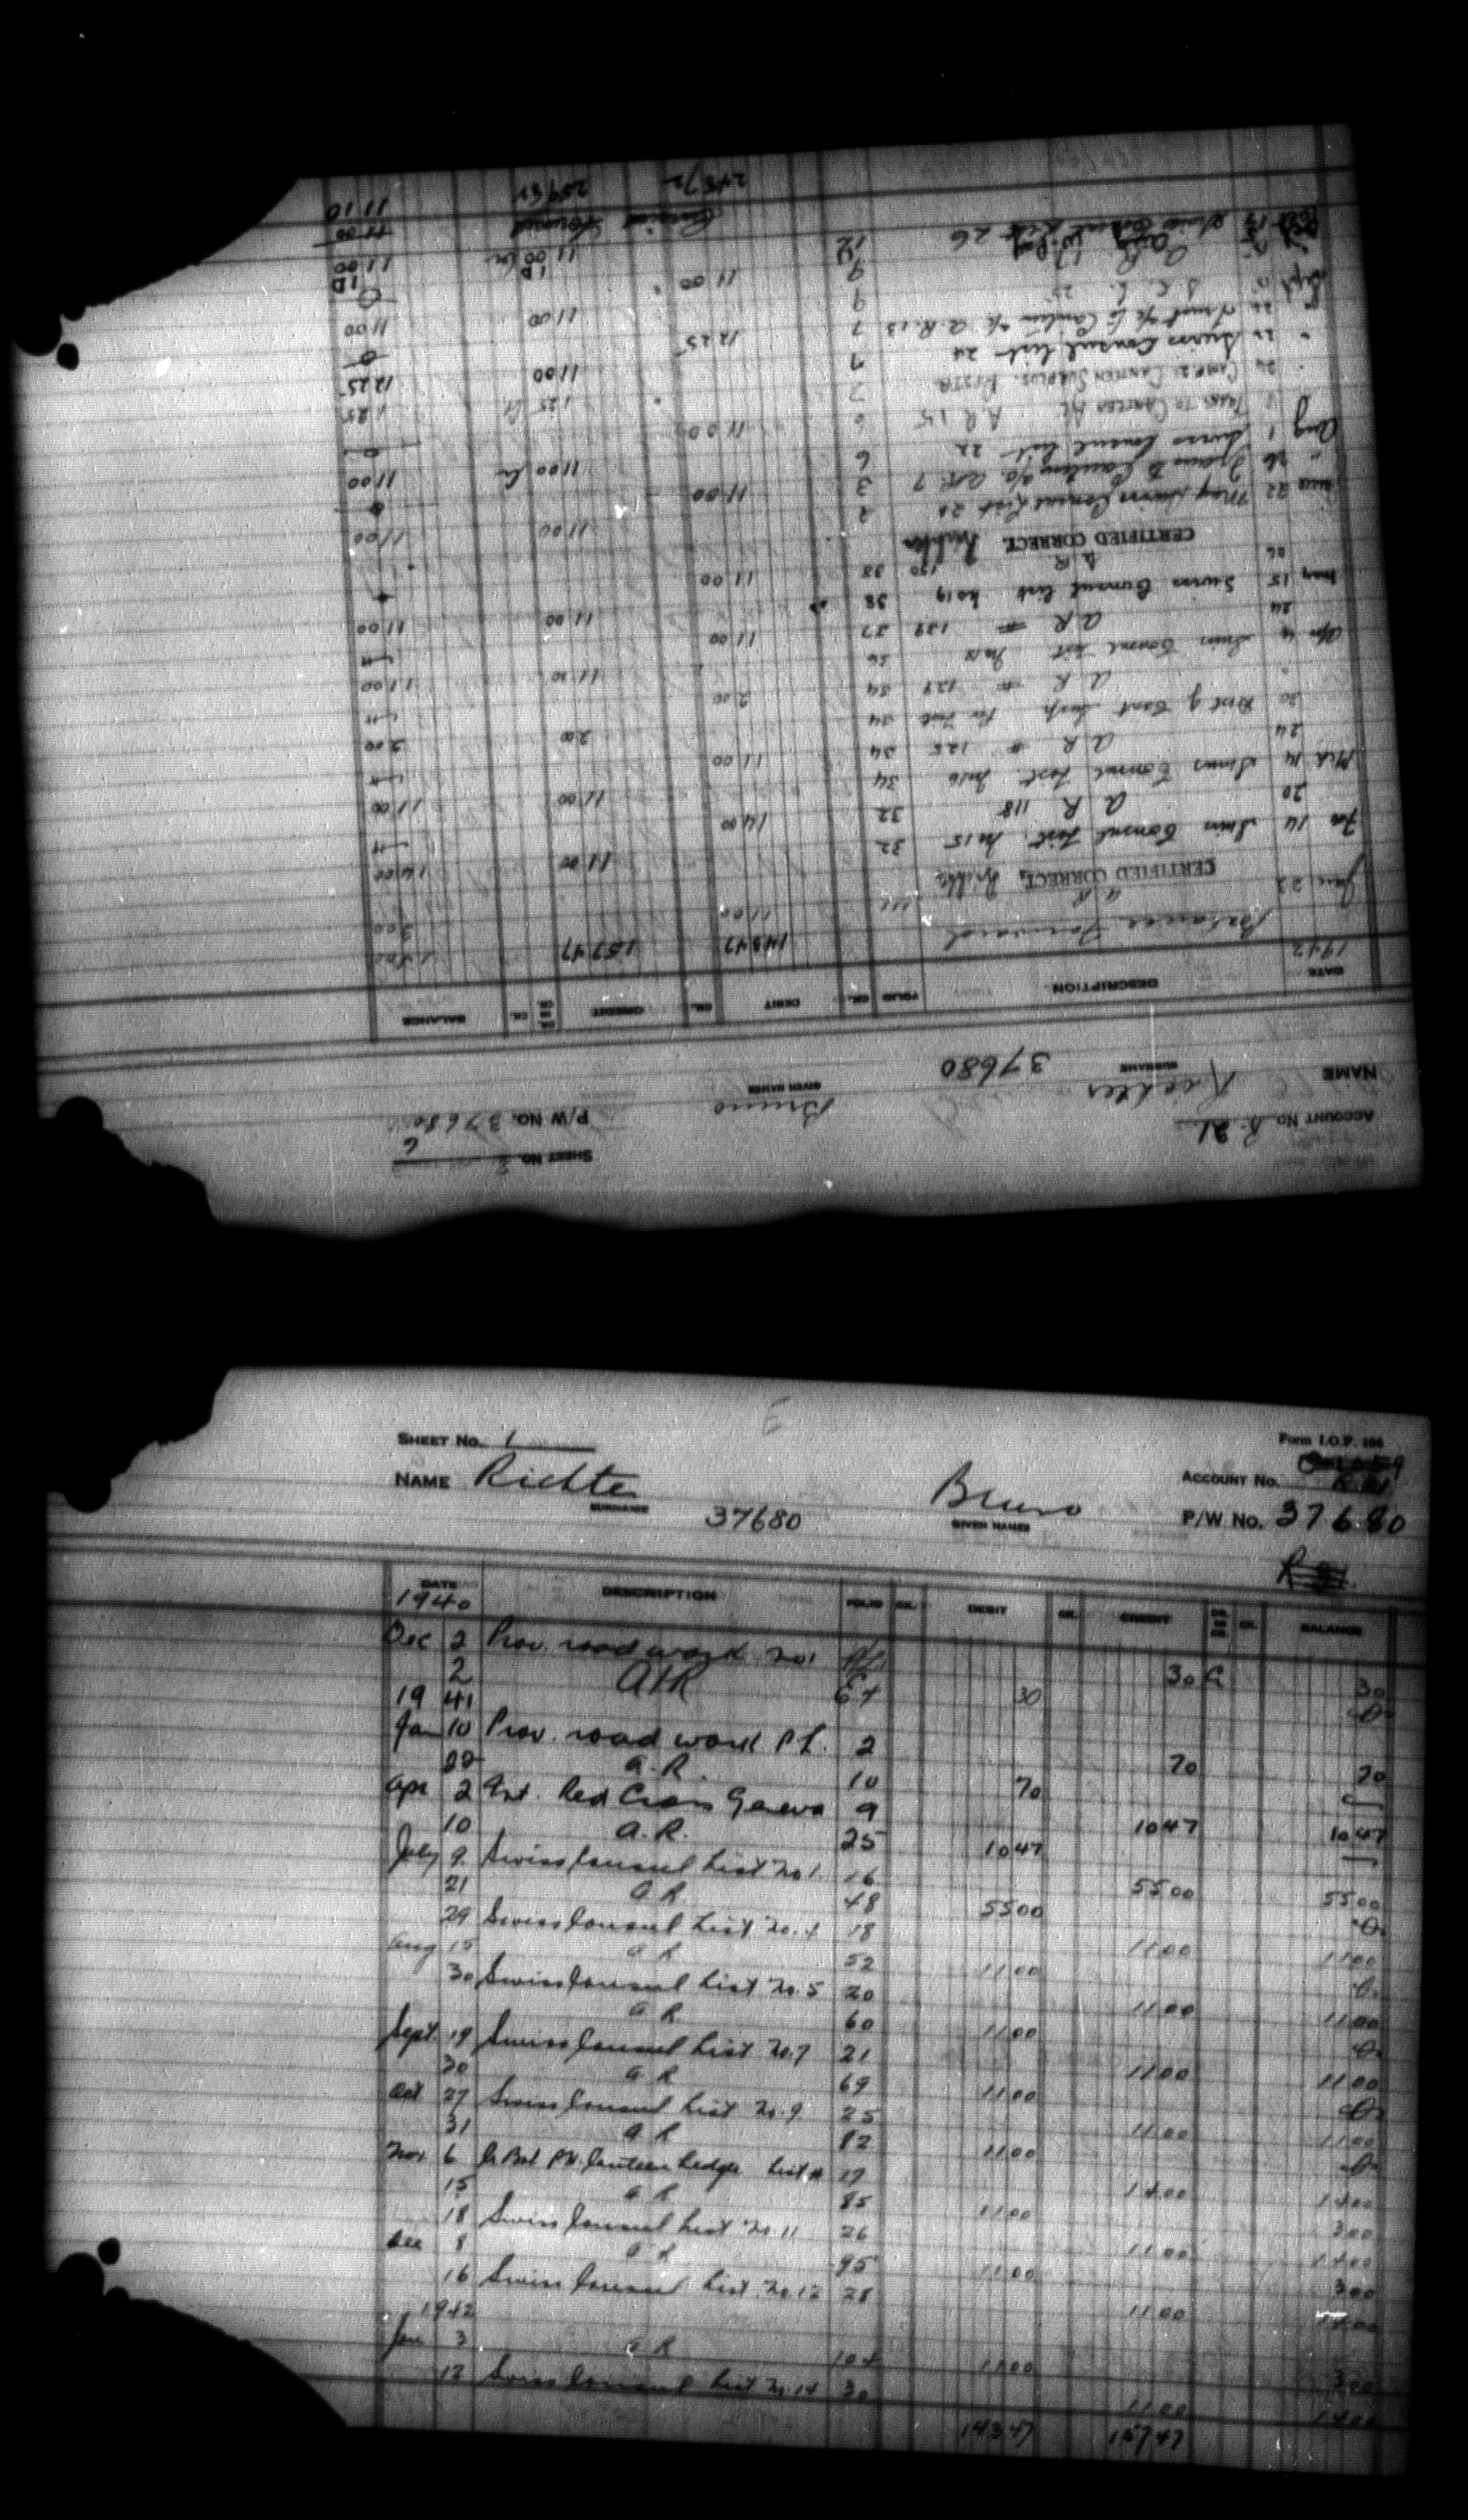 SHEET No. 1
Form I.O.P. 106
NAME Richter Bruno
ACCOUNT No.
SURNAME 37680 GIVEN NAMES P/W No. 37680
DATE DESCRIPTION FOLIO CK. DEBIT CK. CREDIT DR. OR CR. CK. BALANCE
1940
Dec 2 Prov. road work No 1 30 30
2 A/R 30
19 41
Jan 10 Prov. road work P.L. 2 70 70
22 A.R. 10 70
Apr 2 Int. Red Cross Geneva 9 10 47 10 47
10 A.R. 25 10 47
July 9 Swiss Consul List No 1 16 55 00 55 00
21 A R 48 55 00
29 Swiss Consul List No. 4 18 11 00 11 00
Aug 15 A R 52 11 00
30 Swiss Consul List No. 5 20 11 00 11 00
A R 60 11 00
Sept. 19 Swiss Consul List No. 7 21 11 00 11 00
30 A R 69 11 00
Oct 27 Swiss Consul List No. 9 25 11 00 11 00
31 A R 82 11 00
Nov 6 Bal P.W. Canteen Ledger List 14 00 14 00
15 A R 85 11 00 3 00
18 Swiss Consul List No. 11 26 11 00 14 00
Dec 8 A R 95 11 00 3 00
16 Swiss Consul List No. 12 28 11 00 14 00
1942
Jan 3 A R 104 11 00 3 00
12 Swiss Consul List No. 14 30 11 00 14 00
143 47 157 47
SHEET No. 2
ACCOUNT No. R. 21 P/W No. 37680
NAME Richter 37680 Bruno
SURNAME GIVEN NAMES
DATE DESCRIPTION FOLIO CK. DEBIT CK. CREDIT DR. OR CR. CK. BALANCE
1942 Balance Forward 143 47 157 47 14 00
Jan 23 A R 111 11 00 3 00
CERTIFIED CORRECT.
Feb 14 Swiss Consul List No 15 32 11 00 14 00
20 A R 118 32 14 00
Mch 14 Swiss Consul List No 16 34 11 00 11 00
24 A R # 125 34 11 00
30 Dist of Cant Surp 34 2 00 2 00
A R # 127 34 2 00
Apr 4 Swiss Consul List No 18 36 11 00 11 00
24 A R # 139 37 11 00
May 15 Swiss Consul List No 19 38 11 00 11 00
26 A R 150 38 11 00
CERTIFIED CORRECT.
22 May Swiss Consul List 20 2 11 00 11 00
26 Trans to Canteen a/c A.R. 7 3 11 00
Aug 1 Swiss Consul List 22 6 11 00 11 00
TRANS TO CANTEEN A/C A R 15 6 11 00
24 CAMP 21 CANTEEN SURPLUS 7 1 25 1 25
22 Swiss Consul List 24 7 11 00 12 25
Canteen a/c A.R. 7 12 25
Sept 9 11 00 11 00
A R 17 9 11 00
Swiss Consul List 26 12 11 00 11 00
Carried Forward 11 10